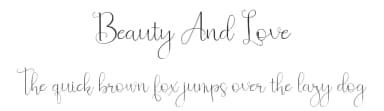 Beauty And Love
The quick brown fox jumps over the lazy dog